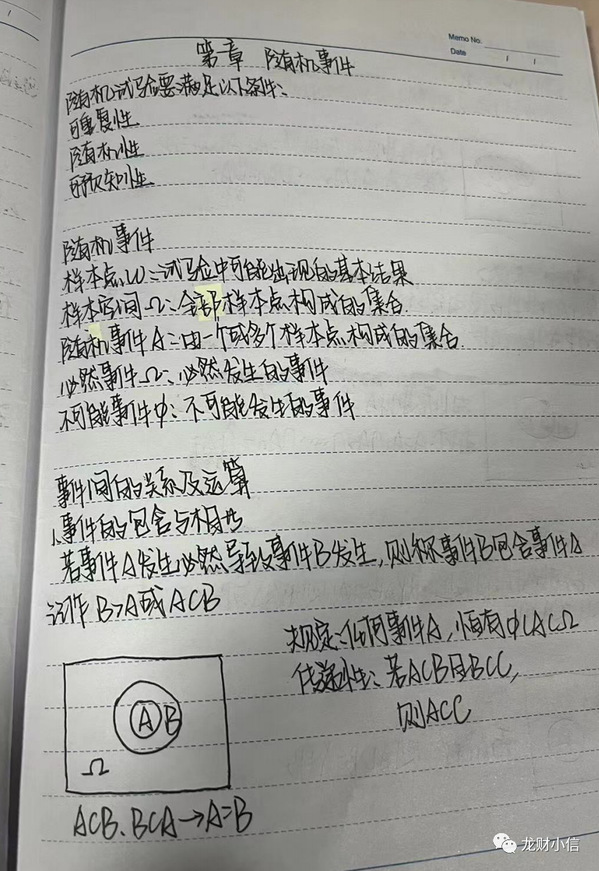 Memo No.
Date / /
第章 随机事件
随机试验要满足以下条件:
可重复性
随机性
可预知性
随机事件
样本点ω:试验中可能出现的基本结果
样本空间Ω:全部样本点构成的集合
随机事件A:由一个或多个样本点构成的集合
必然事件Ω:必然发生的事件
不可能事件φ:不可能发生的事件
事件间的关系及运算
1、事件的包含与相等
若事件A发生必然导致事件B发生,则称事件B包含事件A
记作B⊃A或A⊂B
规定:任何事件A,恒有φ⊂A⊂Ω
传递性:若A⊂B且B⊂C,
则A⊂C
A B
Ω
A⊂B、B⊂A→A=B
龙财小信